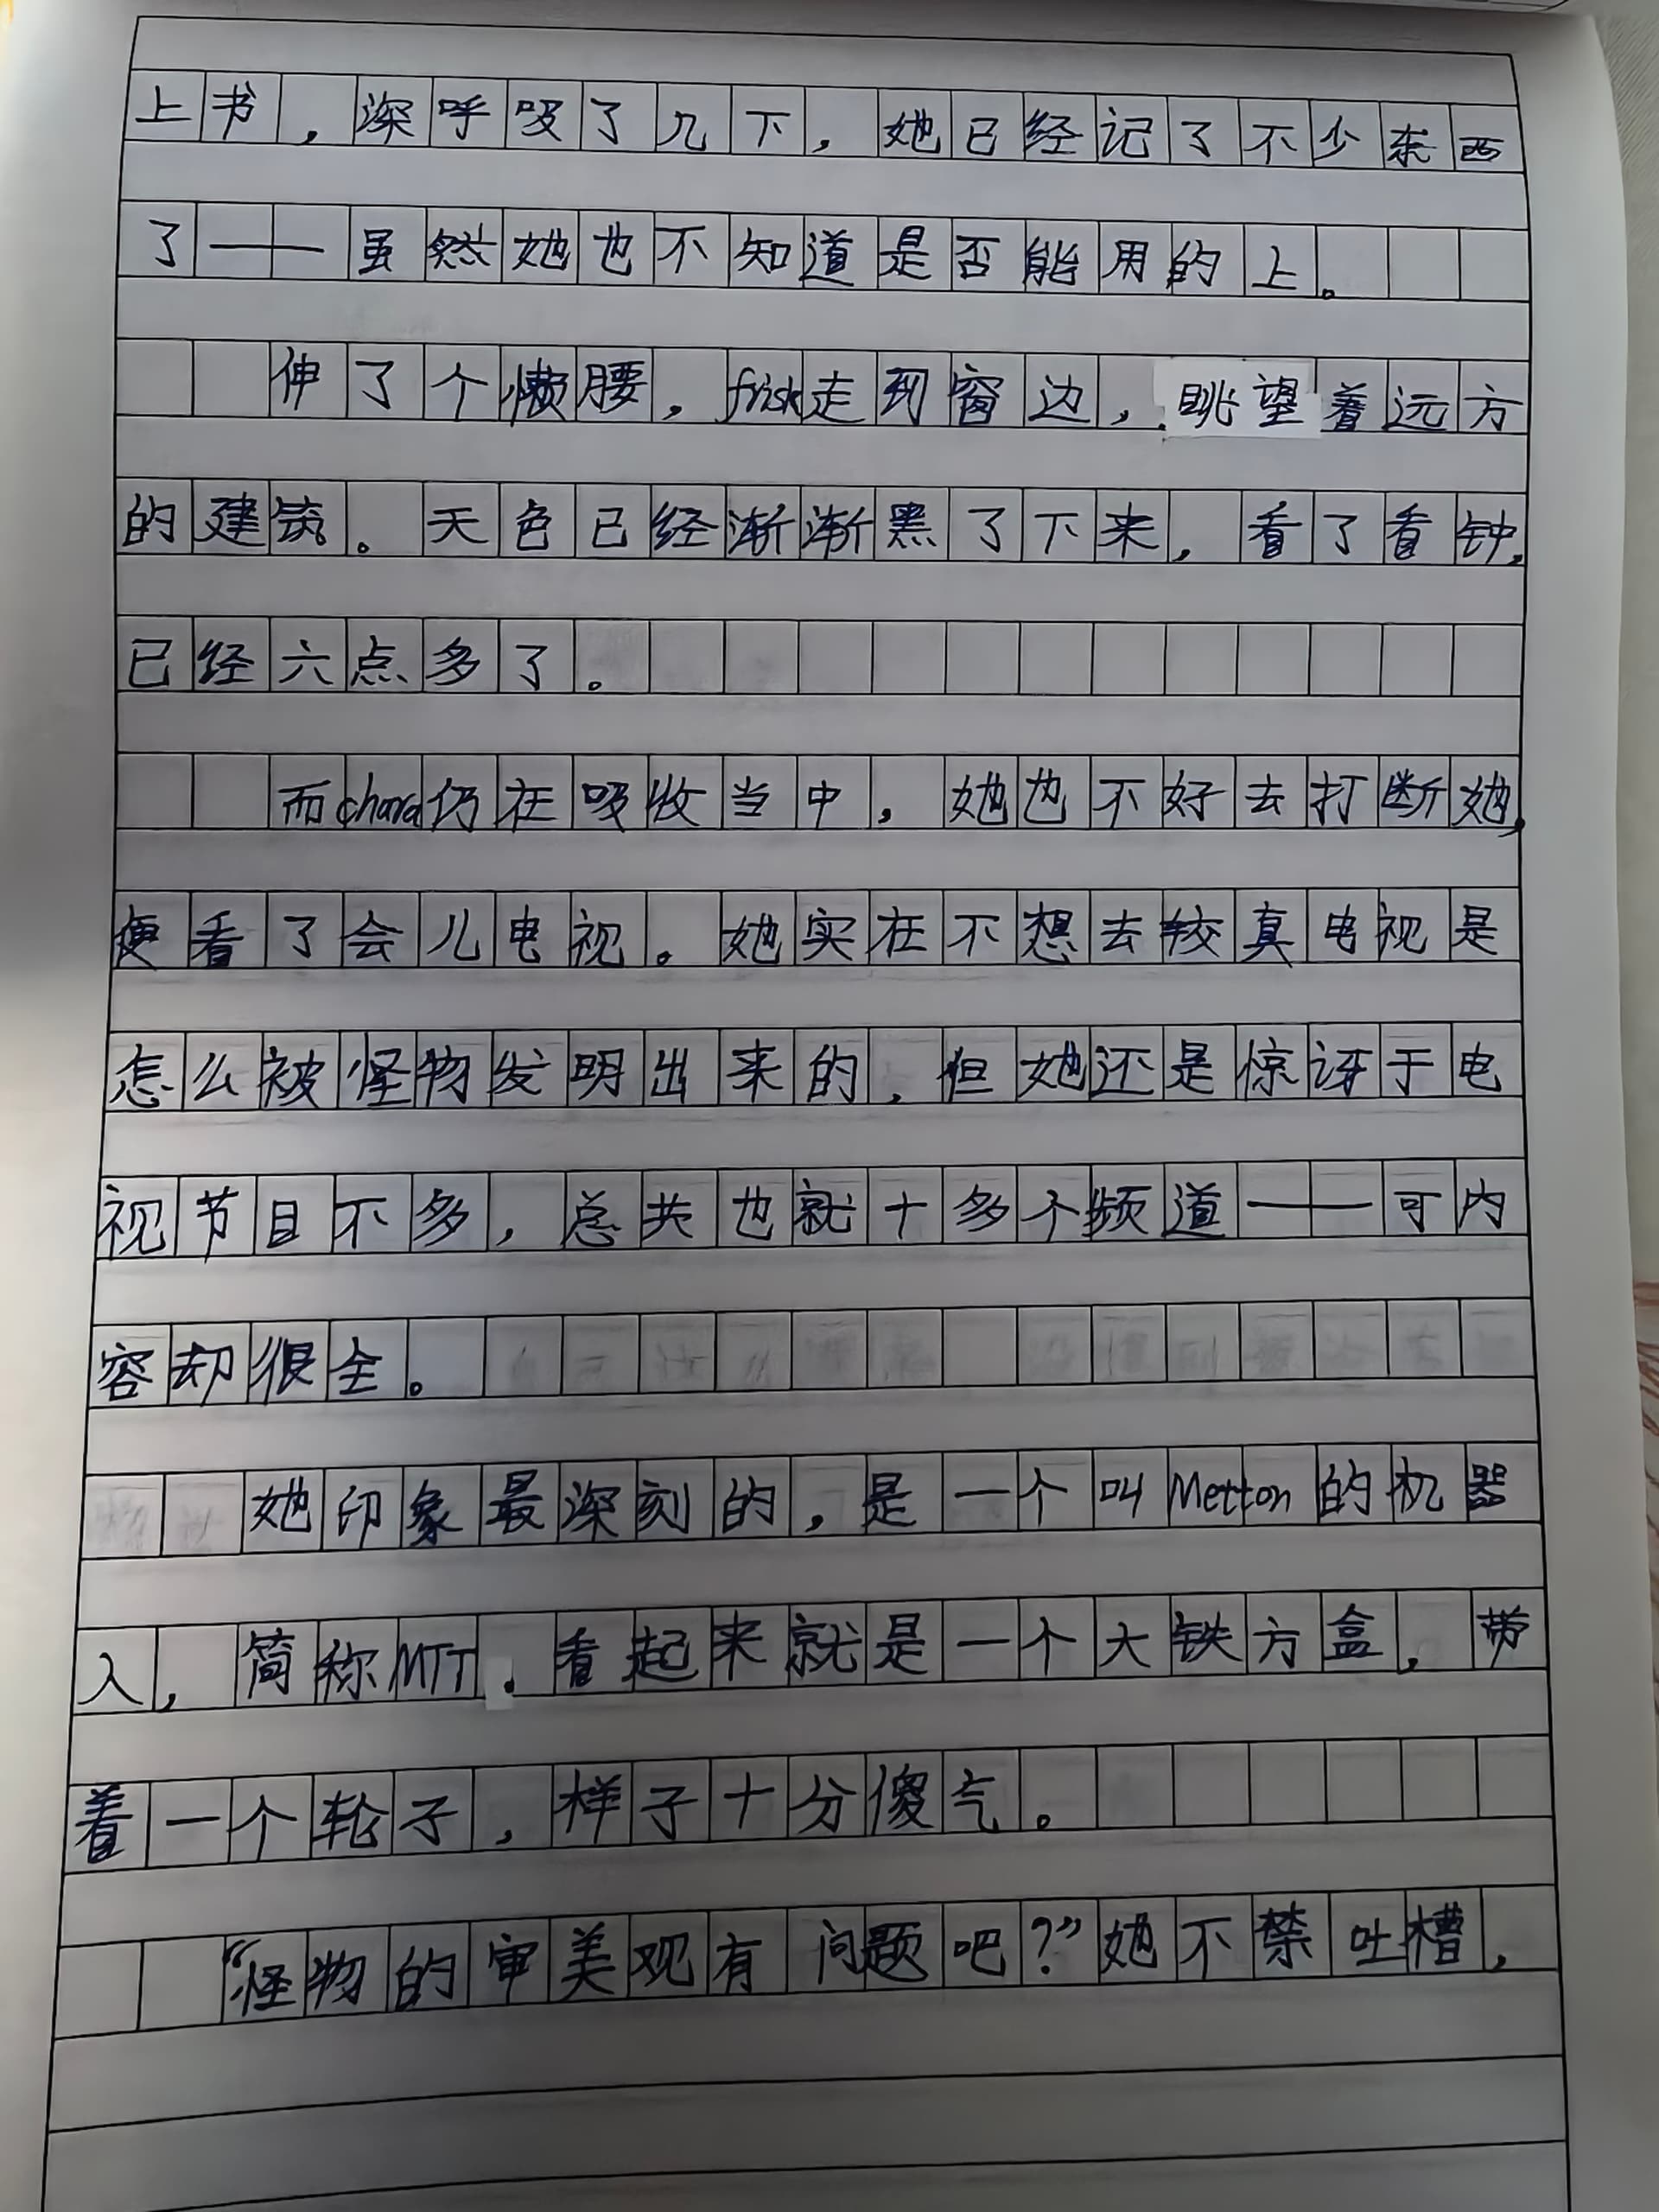 上书，深呼吸了几下，她已经记了不少东西
了——虽然她也不知道是否能用的上。
伸了个懒腰，frisk走到窗边，眺望着远方
的建筑。天色已经渐渐黑了下来，看了看钟，
已经六点多了。
而chara仍在吸收当中，她也不好去打断她，
便看了会儿电视。她实在不想去较真电视是
怎么被怪物发明出来的，但她还是惊讶于电
视节目不多，总共也就十多个频道——可内
容却很全。
她印象最深刻的，是一个叫Metton的机器
人，简称MTT，看起来就是一个大铁方盒，带
着一个轮子，样子十分傻气。
“怪物的审美观有问题吧？”她不禁吐槽，